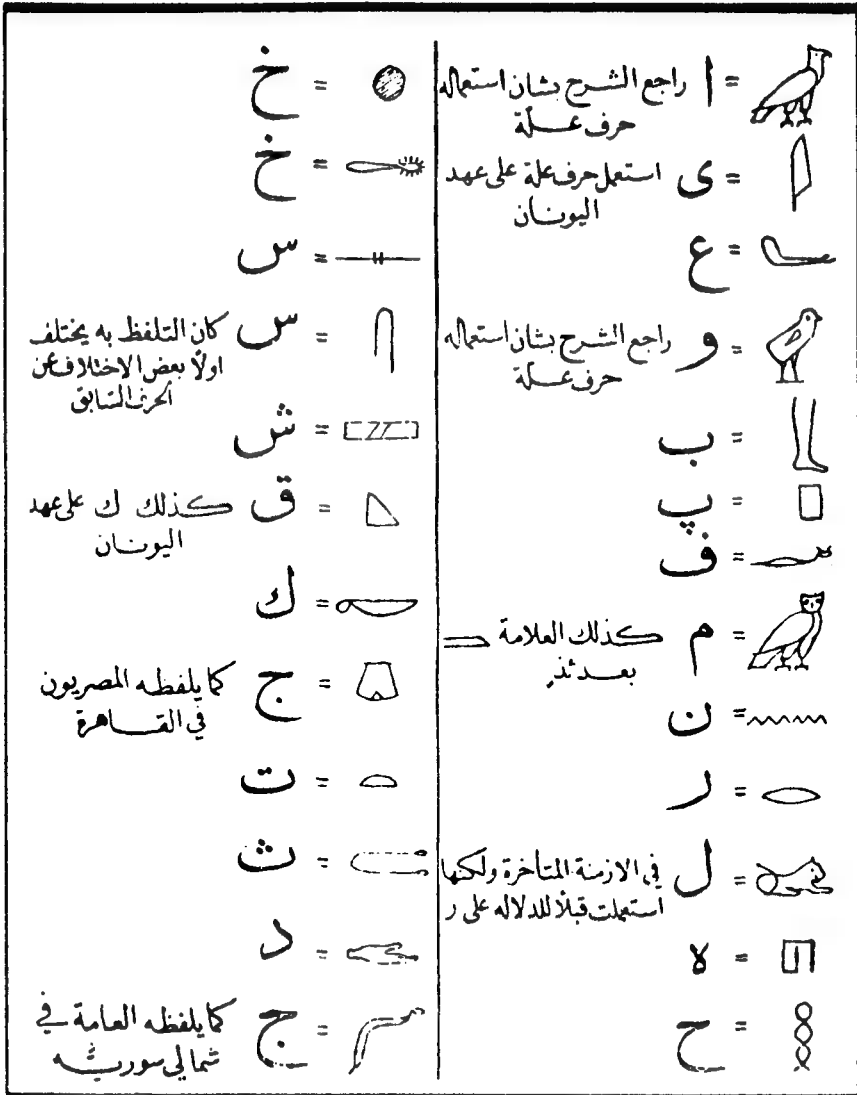 = ا راجع الشرح بشان استعماله
حرف علة
= ى استعمل حرف علة على عهد
اليونان
= ع
= و راجع الشرح بشان استعماله
حرف علة
= ب
= پ
= ف
= م كذلك العلامة
بعدئذ
= ن
= ر
= ل في الازمنة المتأخرة ولكنها
استعملت قبلاً للدلاله على ر
= ه
= ح
= خ
= خ
= س
= س كان التلفظ به يختلف
اولاً بعض الاختلاف عن
الحرف السابق
= ش
= ق كذلك ك على عهد
اليونان
= ك
= ج كما يلفظه المصريون
في القاهرة
= ت
= ث
= د
= ج كما يلفظه العامة في
شمالي سورية